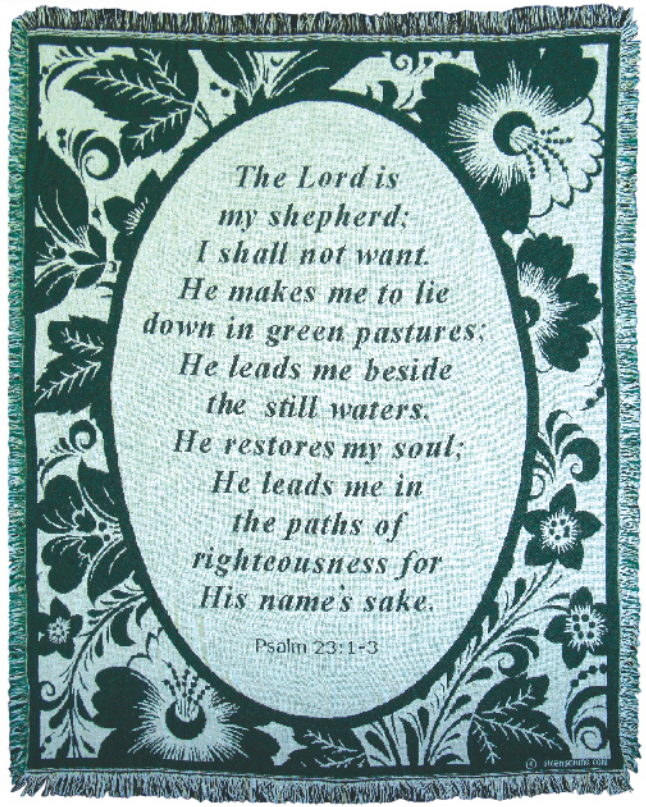 The Lord is
my shepherd;
I shall not want.
He makes me to lie
down in green pastures;
He leads me beside
the still waters.
He restores my soul;
He leads me in
the paths of
righteousness for
His name's sake.
Psalm 23:1-3